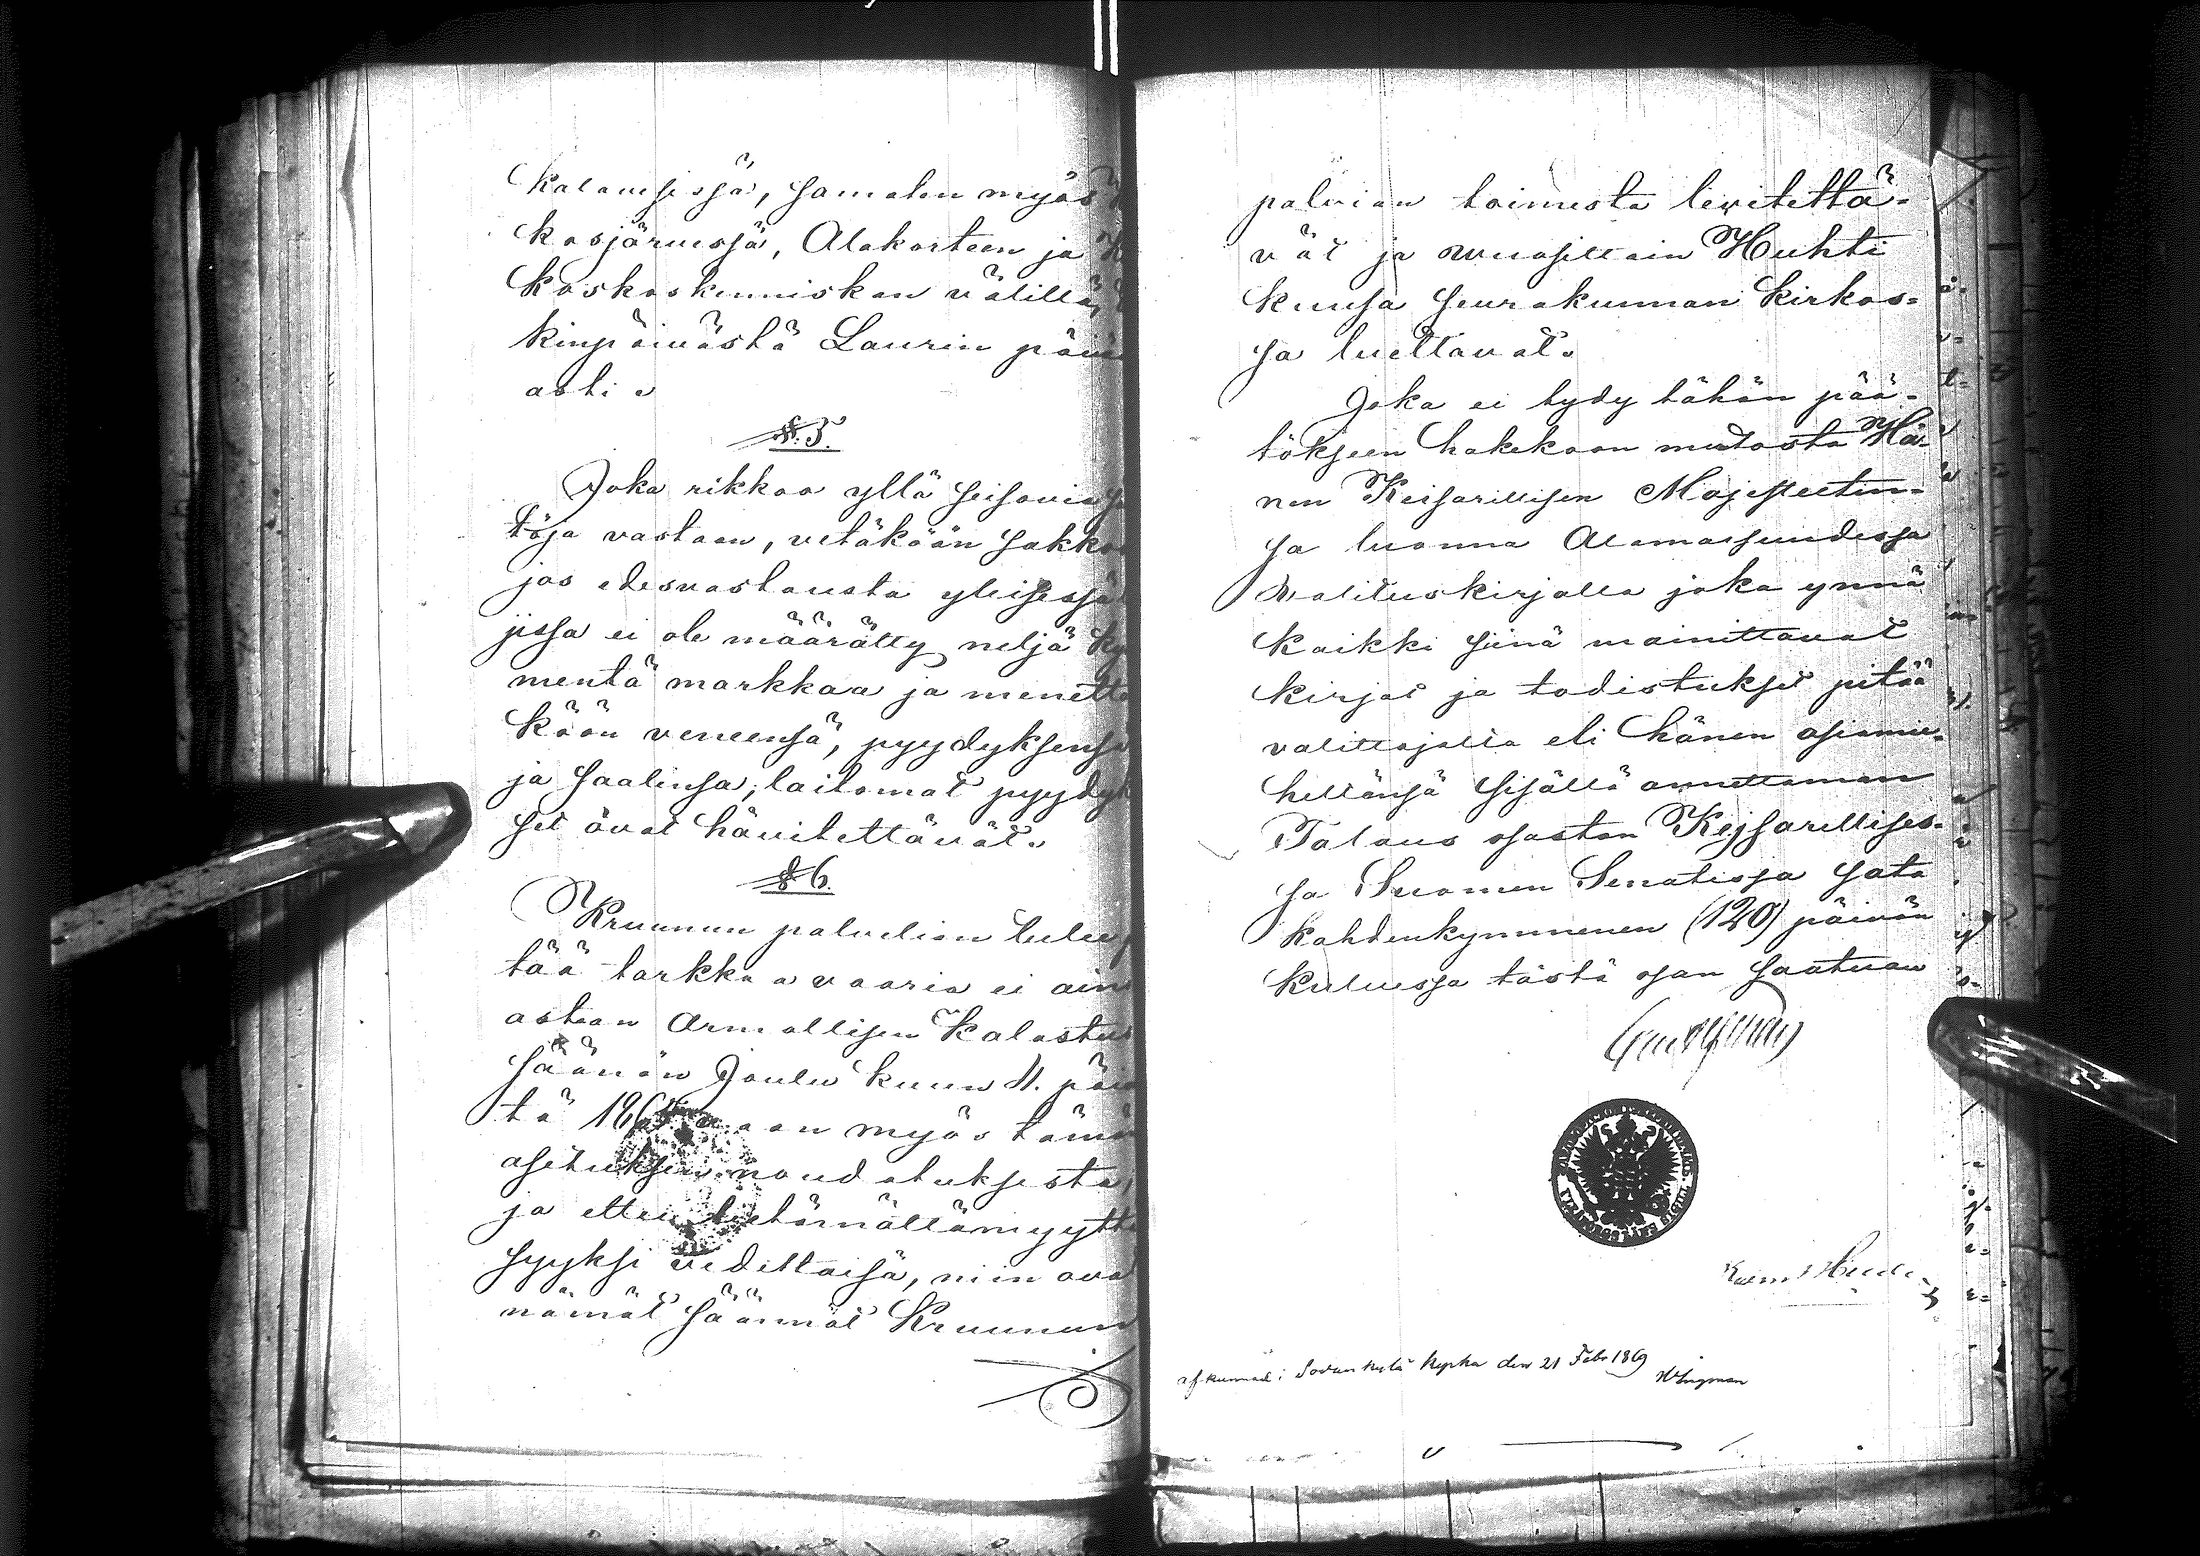 Kalavesissä, samaten myös
kosjärvessä, Alakorteen ja
Koskoskenniskan välillä,
kinpäivästä Laurin päiv
asti.
§. 5.
Joka rikkoo yllä seisovia
töjä vastaan, vetäköön sakkoa
jos edesvastausta yleisessä
jissa ei ole määrätty neljä ky
mentä markkaa ja menettä
köön veneensä, pyydyksensä
ja saalinsa; lailomat pyydyk
set ovat hävitettävät.
§ 6.
Kruunun palvelian tulee
tää tarkka vaaria ei ain
astaan Armollisen Kalastus
säännön Joulu kuun 4. päiv
tä 1865 vaan myös tämän
asetuksen noudatuksesta,
ja ettei tietämättömyyttä
syyksi vedettäisä, niin ovat
nämät säännöt Kruunun
palvian toimesta levitettä-
vät ja vuosittain Huhti
kuusa seurakunnan kirkos-
sa luettavat.
Joka ei tydy tähän pää-
tökseen hakekoon mutosta Hä-
nen Keisarillisen Majesteetin-
sa luonna Alamaisuudessa
Valituskirjalla joka ynnä
kaikki siinä mainittavat
kirjat ja todistukset pitää
valittajalta eli hänen asiamie-
heltänsä sisällä annettaman
Talous osaston Kejsarillises-
sa Suomen Senatissa sata
kahdenkymmenen (120) päivän
kuluessa tästä osan saatuaan
afkunnad i Sodankylä kyrka den 21 Febr 1869